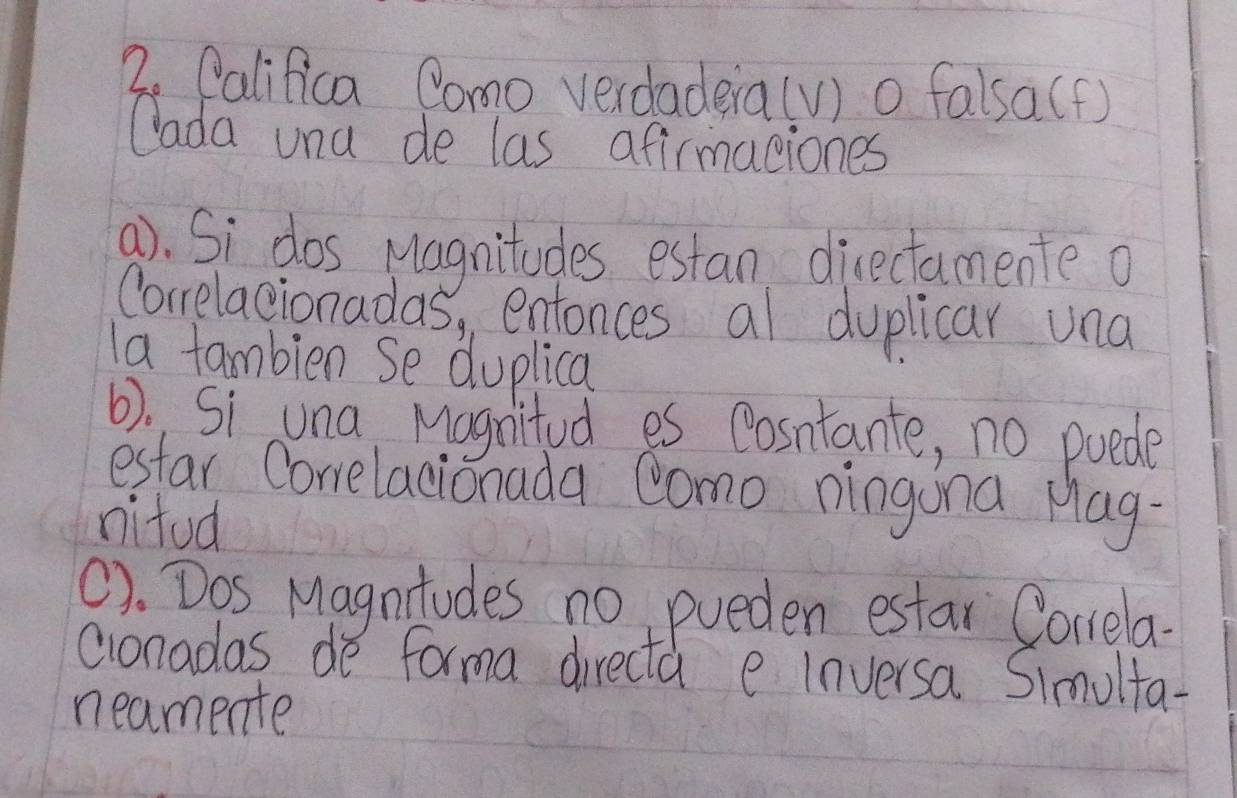 2. Califica Como verdadera(v) o falsa(f)
Cada una de las afirmaciones
a). Si dos Magnitudes estan directamente o
Correlacionadas, entonces al duplicar una
la tambien se duplica
b). Si una Magnitud es Cosntante, no puede
estar Correlacionada Como ninguna Mag-
nitud
C). Dos Magnitudes no pueden estar Correla-
cionadas de forma directa e inversa Simulta-
neamente